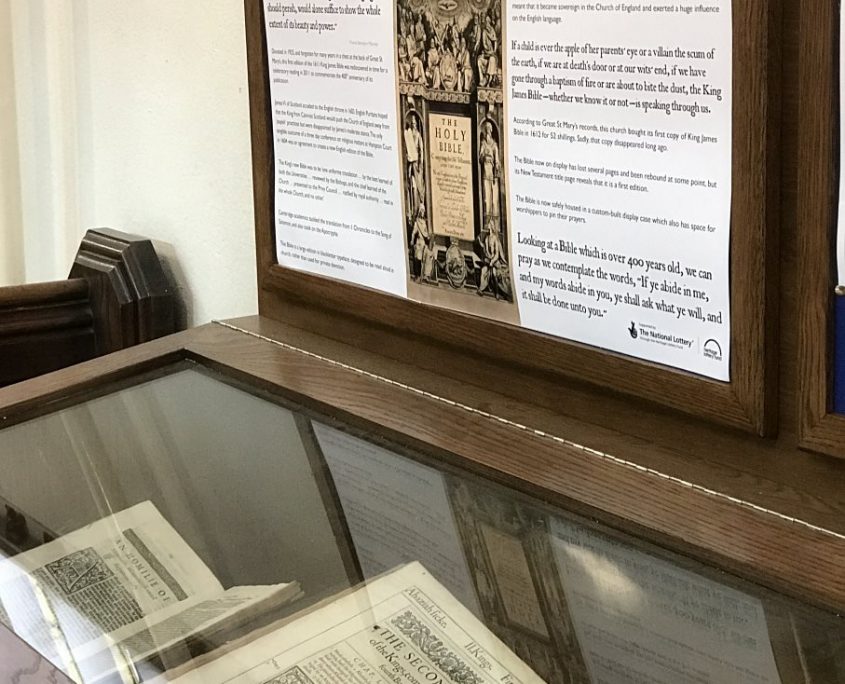 should perish, would alone suffice to show the whole
extent of its beauty and power."
Donated in 1925, and forgotten for many years in a chest at the back of Great St
Mary's, this first edition of the 1611 King James Bible was rediscovered in time for a
celebratory reading in 2011 to commemorate the 400th anniversary of its
publication.
James VI of Scotland acceded to the English throne in 1603. English Puritans hoped
that the King from Calvinist Scotland would push the Church of England away from
'papist' practices but were disappointed by James's moderate stance. The only
tangible outcome of a three day conference on religious matters at Hampton Court
in 1604 was an agreement to create a new English edition of the Bible.
The King's new Bible was to be 'one uniforme translation ... by the best learned of
both the Universities ... reviewed by the Bishops, and the chief learned of the
Church ... presented to the Privy Council ... ratified by royal authority ... read in
the whole Church, and no other.'
Cambridge academics tackled the translation from 1 Chronicles to the Song of
Solomon, and also took on the Apocrypha.
This Bible is a large edition in blackletter typeface designed to be read aloud in
church, rather than used for private devotion.
THE
HOLY
BIBLE,
meant that it became sovereign in the Church of England and exerted a huge influence
on the English language.
If a child is ever the apple of her parents' eye or a villain the scum of
the earth, if we are at death's door or at our wits' end, if we have
gone through a baptism of fire or are about to bite the dust, the King
James Bible – whether we know it or not – is speaking through us.
According to Great St Mary's records, this church bought its first copy of King James
Bible in 1612 for 52 shillings. Sadly, that copy disappeared long ago.
The Bible now on display has lost several pages and been rebound at some point, but
its New Testament title page reveals that it is a first edition.
The Bible is now safely housed in a custom-built display case which also has space for
worshippers to pin their prayers.
Looking at a Bible which is over 400 years old, we can
pray as we contemplate the words, "If ye abide in me,
and my words abide in you, ye shall ask what ye will, and
it shall be done unto you."
Supported by
The National Lottery®
through the Heritage Lottery Fund
heritage
lottery fund
AN HOMILIE OF
Ahaziah sicke.
II. Kings.
THE SECON
of the Kings, com
CHAP.